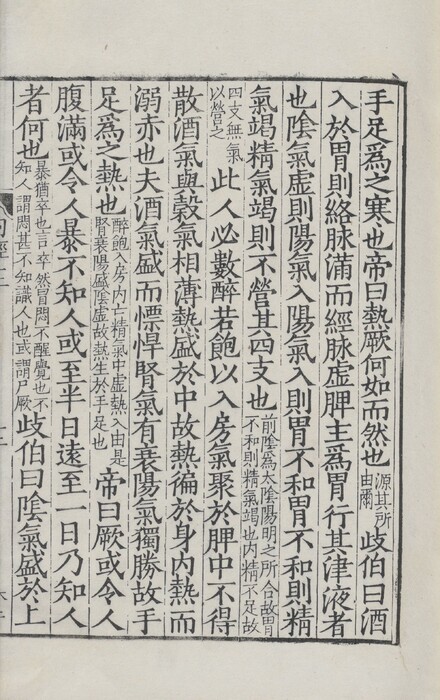 手足爲之寒也帝曰熱厥何如而然也源其所由爾歧伯曰酒
入於胃則絡脉滿而經脉虚脾主爲胃行其津液者
也陰氣虚則陽氣入陽氣入則胃不和胃不和則精
氣竭精氣竭則不營其四支也前陰爲太陰陽明之所合故胃不和則精氣竭也内精不足故
四支無氣以營之此人必數醉若飽以入房氣聚於脾中不得
散酒氣與穀氣相薄熱盛於中故熱徧於身内熱而
溺赤也夫酒氣盛而慓悍腎氣有衰陽氣獨勝故手
足爲之熱也醉飽入房内亡精氣中虚熱入由是腎衰陽盛陰虚故熱生於手足也帝曰厥或令人
腹滿或令人暴不知人或至半日遠至一日乃知人
者何也暴猶卒也言卒然冒悶不醒覺也不知人謂悶甚不知識人也或謂尸厥歧伯曰陰氣盛於上